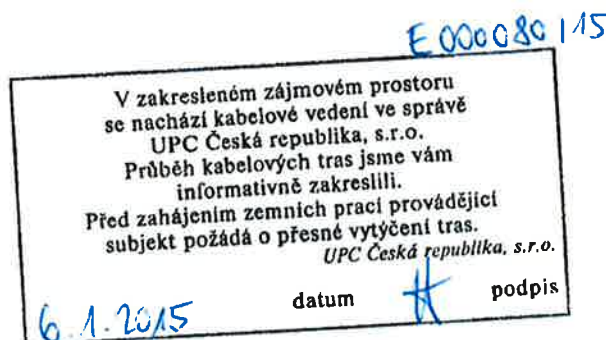 E000080/15
V zakresleném zájmovém prostoru
se nachází kabelové vedení ve správě
UPC Česká republika, s.r.o.
Průběh kabelových tras jsme vám
informativně zakreslili.
Před zahájením zemních prací provádějící
subjekt požádá o přesné vytýčení tras.
UPC Česká republika, s.r.o.
6.1.2015 datum podpis